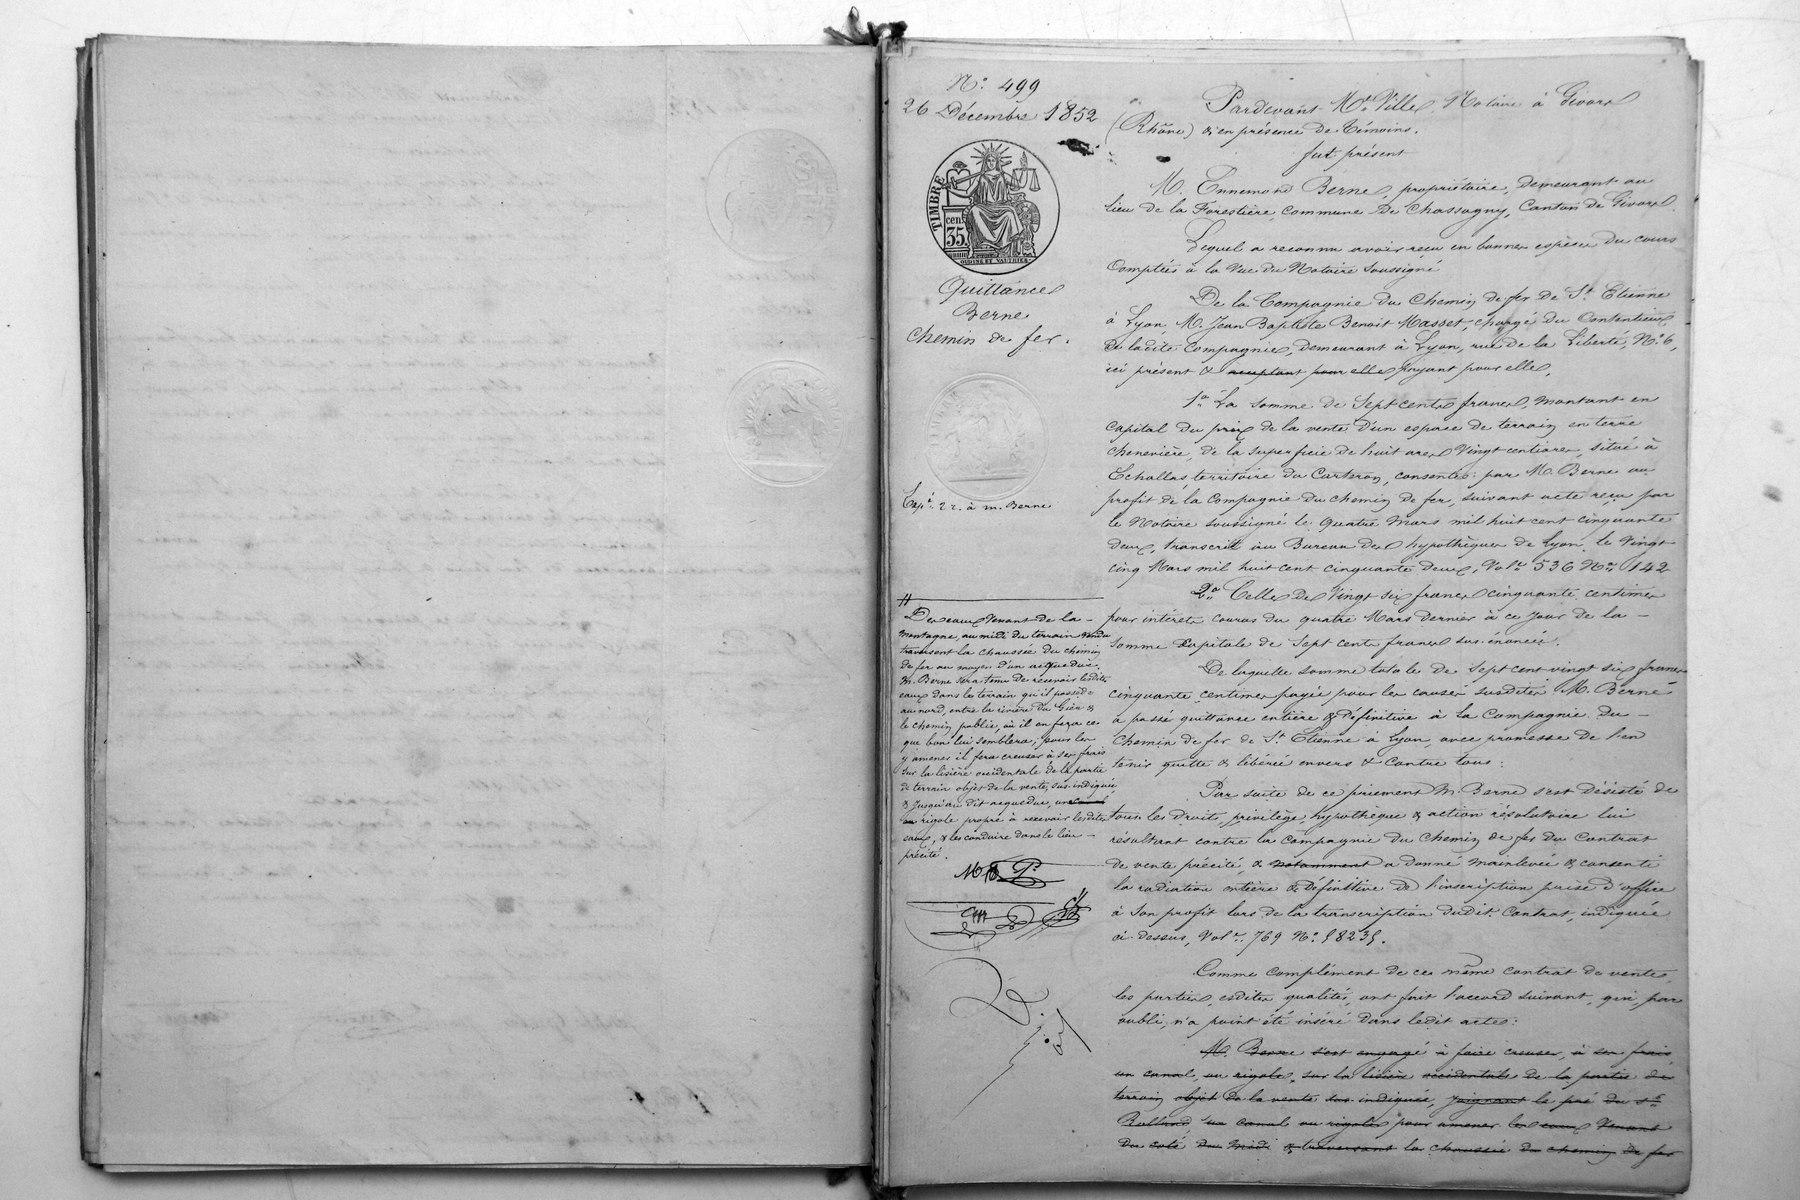 N° 499
26 Décembre 1852
TIMBRE
cen.
35
OUDINE ET VAUTHIER
Quittance
Berne
Chemin de fer.
Exp.é 2 r. à m. Berne
Pardevant Me Ville, Notaire à Givors
(Rhône) & en présence de témoins.
fut présent
M. Ennemond Berne, propriétaire, demeurant au
lieu de la Forestière, commune de Chassagny, canton de Givors.
Lequel a reconnu avoir reçu en bonnes espèces du cours
Comptées à la vue du Notaire soussigné
De la Compagnie du Chemin de fer de St Etienne
à Lyon, M. Jean Baptiste Benoit Masset, chargé du Contentieux
de ladite Compagnie, demeurant à Lyon, rue de la Liberté, N° 6,
ici présent & acceptant pour elle payant pour elle,
1° La somme de Sept cents francs, montant en
capital du prix de la vente d'un espace de terrain en terre
chenevière, de la superficie de huit ares vingt centiares, situé à
Echallas, territoire du Carteron, consentie par M. Berne au
profit de la Compagnie du chemin de fer, suivant acte reçu par
le Notaire soussigné le quatre mars mil huit cent cinquante
deux, transcrit au Bureau des hypothèques de Lyon, le vingt
cinq Mars mil huit cent cinquante deux, Vol. 536 N° 142
2° Celle de Vingt six francs cinquante centimes
pour intérêts courus du quatre Mars dernier à ce jour de la
somme capitale de Sept cents francs sus énoncée.
De laquelle somme totale de sept cent vingt six francs
cinquante centimes payée pour les causes susdites M. Berne
a passé quittance entière & définitive à la Compagnie du
Chemin de fer de St Etienne à Lyon, avec promesse de l'en
tenir quitte & libérée envers & contre tous:
Par suite de ce paiement M. Berne s'est désisté de
tous les droits, privilège, hypothèque & action résolutoire lui
résultant contre la Compagnie du Chemin de fer du Contrat
de vente précité, & notamment a donné mainlevée & consenti
la radiation entière & définitive de l'inscription prise d'office
à son profit lors de la transcription dudit Contrat, indiquée
ci-dessus, Vol. 769 N° 58235.
Comme complément de ce même contrat de vente,
les parties, esdites qualités, ont fait l'accord suivant, qui, par
oubli, n'a point été inséré dans ledit acte:
M. Berne s'est engagé à faire creuser, à ses frais,
un canal, ou rigole, sur la lisière occidentale de la partie de
terrain objet de la vente sus-indiquée, joignant le pré du Sr
Rolland, un canal ou rigole pour amener les eaux venant
du côté du Midi & traversant la chaussée du chemin de fer
//
Les eaux venant de la
montagne, au midi du terrain vendu
traversent la chaussée du chemin
de fer au moyen d'un acqueduc.
M. Berne sera tenu de recevoir lesdites
eaux dans le terrain qu'il possède
au nord, entre la rivière du Gier &
le chemin public, où il en fera ce
que bon lui semblera; pour les
y amener il fera creuser à ses frais
sur la lisière occidentale de la partie
de terrain objet de la vente, sus-indiquée
& jusqu'au dit acqueduc, un canal
ou rigole propre à recevoir lesdites
eaux, & les conduire dans le lieu
précité.